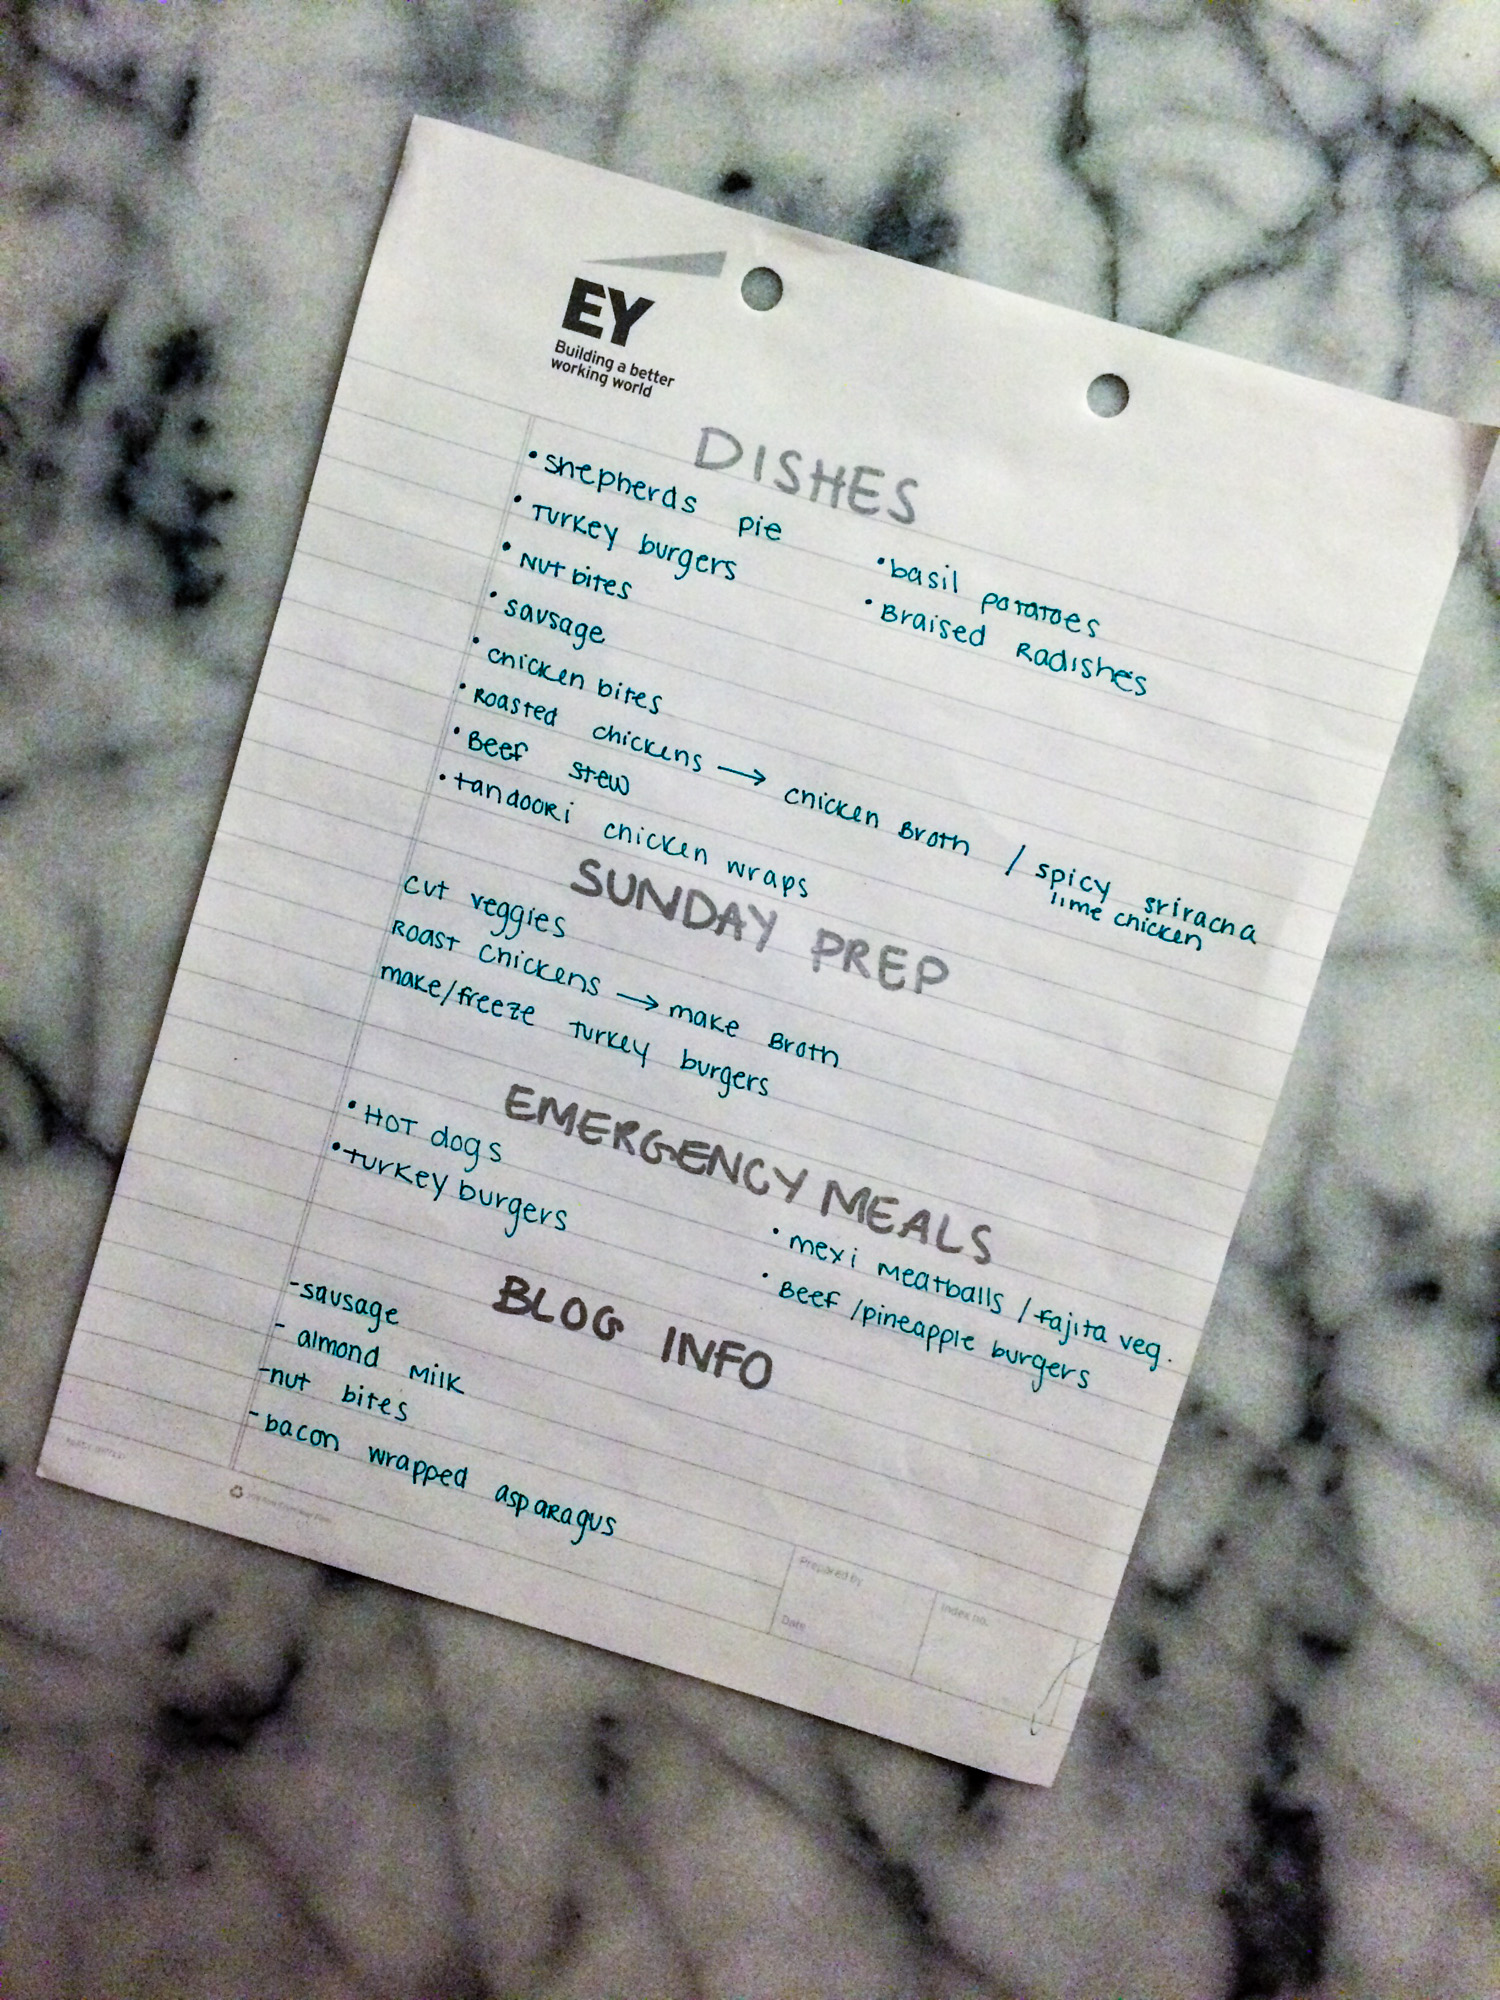 EY
Building a better
working world
DISHES
• shepherds pie
• Turkey burgers
• Nut bites
• sausage
• basil potatoes
• Braised Radishes
• chicken bites
• Roasted chickens → chicken Broth / spicy sriracha
lime chicken
• Beef stew
• tandoori chicken wraps
SUNDAY PREP
cut veggies
Roast chickens → make Broth
make/freeze Turkey burgers
EMERGENCY MEALS
• HOT dogs
• turkey burgers
• mexi meatballs / fajita veg.
• Beef /pineapple burgers
BLOG INFO
-sausage
- almond milk
-nut bites
-bacon wrapped asparagus
Prepared by
Date
Index no.